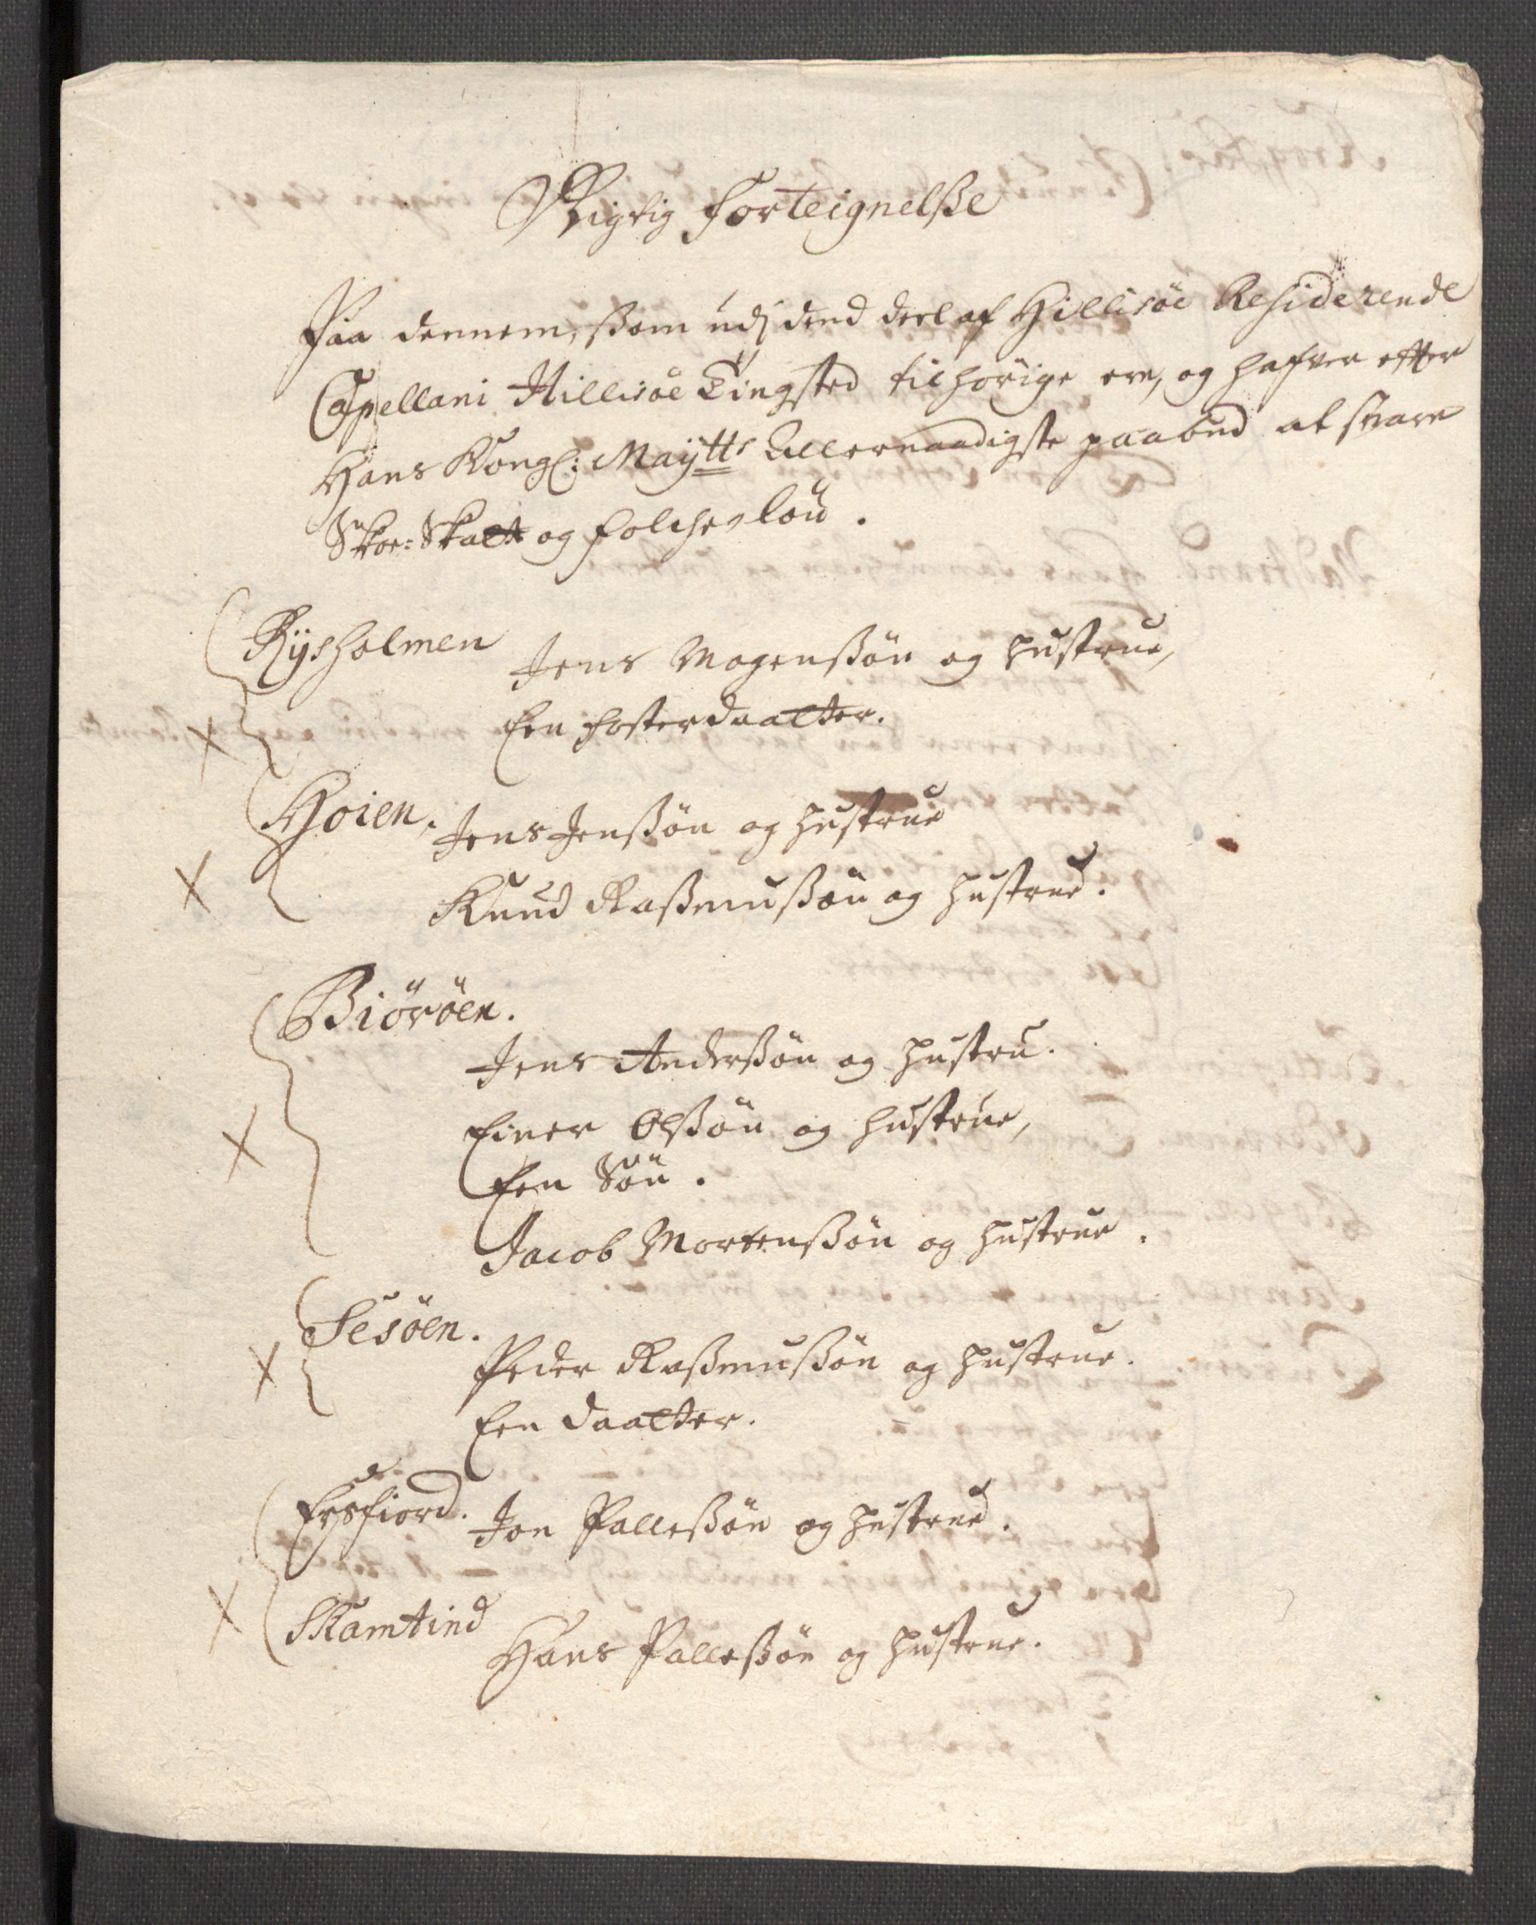 Rigtig Forteignelsse
Paa dennem, ssom udj dend deel af Hillisöe Residerende
Capellani Hillisöe Tingsted tilhørige ere, og hafver effter
Hans Kongl: Maÿtts Allernaadigste paabud at svare
Skoe: Skatt og Folches lön.
Rÿsholmen Jens Mogenssön og hustrue,
Een Fosterdaatter.
Høien. Jens Jenssön og hustrue
Knud Rassmussön og hustrue.
Biöröen.
Jens Anderssön og hustru.
Einer Olssön og hustrue,
Een Sön.
Jacob Mortenssön og hustrue.
Sesöen.
Peder Rassmussön og hustrue.
Een daatter.
Ersfiord. Jon Pallessön og hustrue.
Skamtind Hans Pallessön og hustrue.